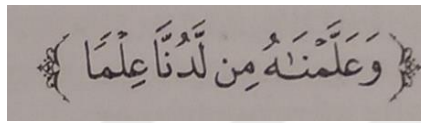 ﴿وَعَلَّمْنَـٰهُ مِن لَّدُنَّا عِلْمًا﴾